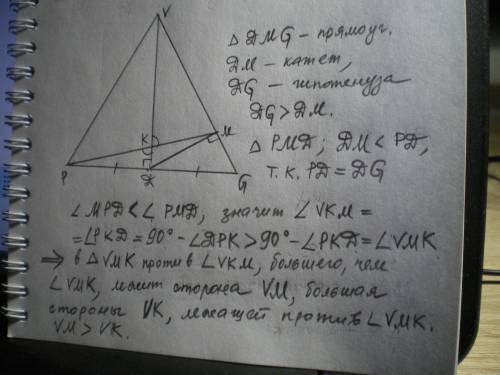 V
△ DMG – прямоуг.
DM – катет,
DG – гипотенуза
DG > DM.
K
M
△ PMD; DM < PD,
P
D
G
т.к. PD = DG
∠MPD < ∠PMD, значит ∠VKM =
= ∠PKD = 90° – ∠DPK > 90° – ∠PKD = ∠VMK
⇒ в △VMK против ∠VKM, большего, чем
∠VMK, лежит сторона VM, большая
стороны VK, лежащей против ∠VMK.
VM > VK.